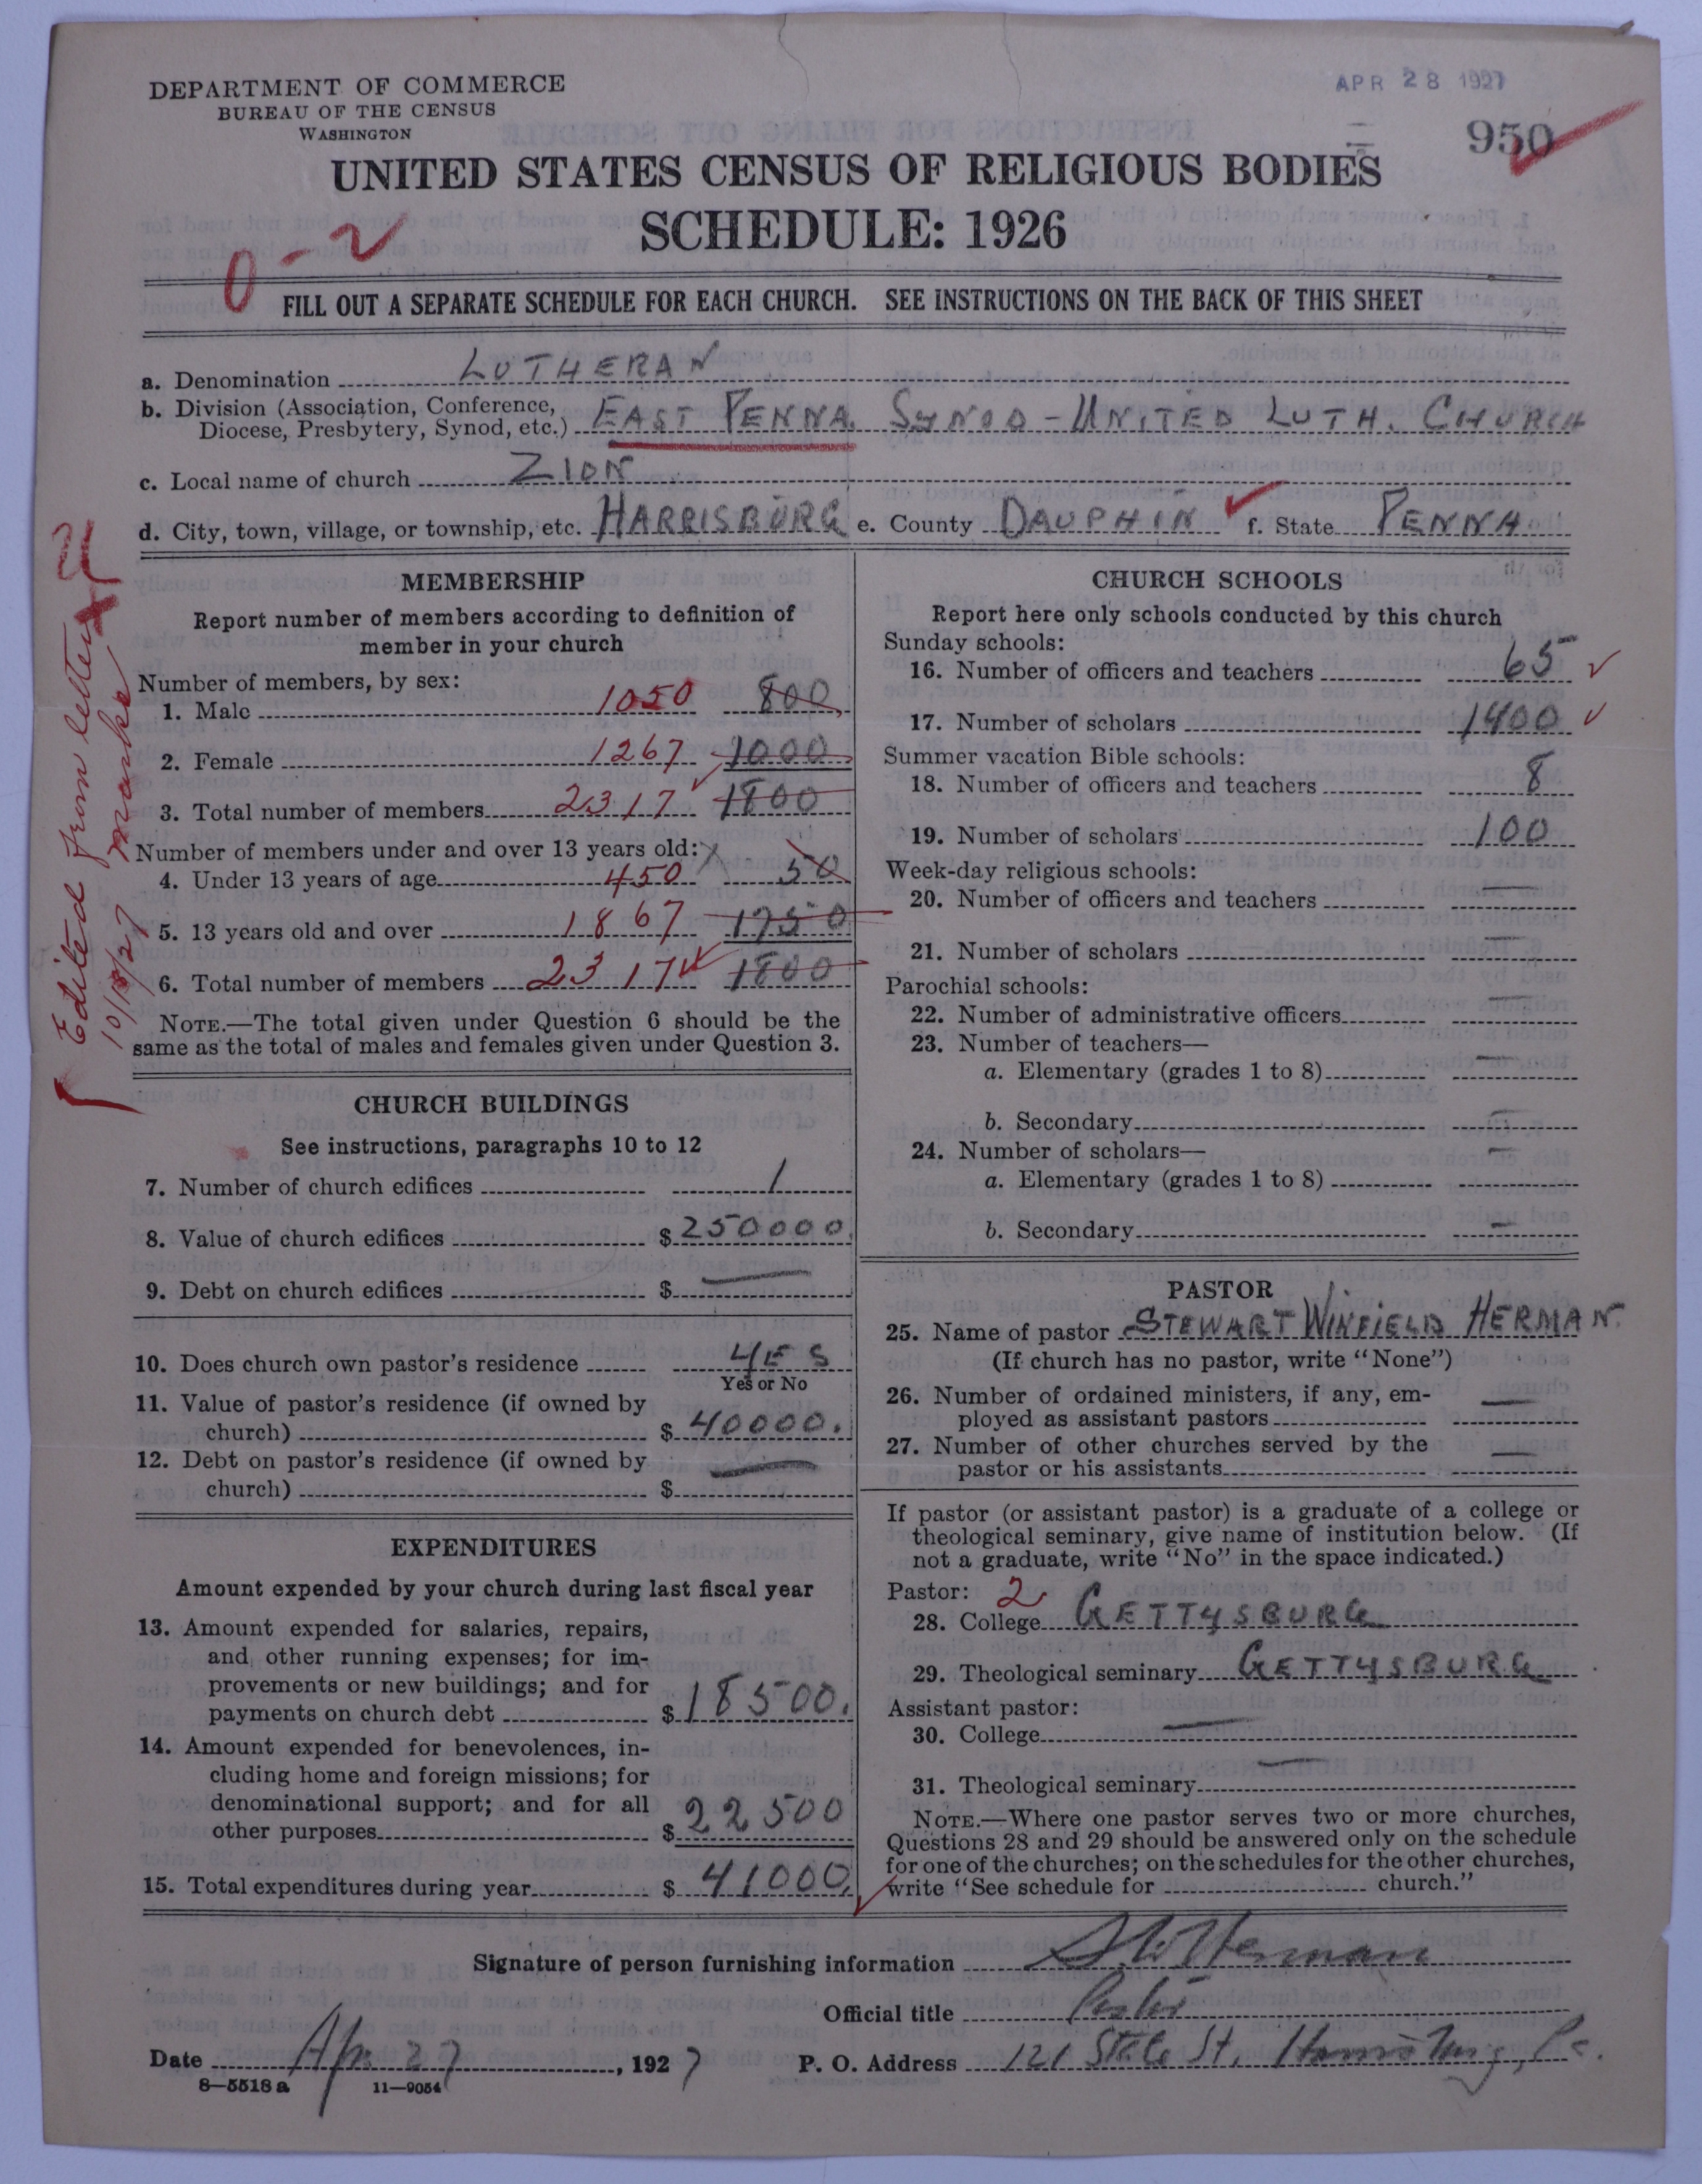 DEPARTMENT OF COMMERCE
BUREAU OF THE CENSUS
WASHINGTON
APR 28 1927
950
UNITED STATES CENSUS OF RELIGIOUS BODIES
SCHEDULE: 1926
0-2
FILL OUT A SEPARATE SCHEDULE FOR EACH CHURCH. SEE INSTRUCTIONS ON THE BACK OF THIS SHEET
a. Denomination LUTHERAN
b. Division (Association, Conference,
Diocese, Presbytery, Synod, etc.) EAST PENNA. SYNOD-UNITED LUTH. CHURCH
c. Local name of church ZION
d. City, town, village, or township, etc. HARRISBURG e. County DAUPHIN f. State PENNA.
Edited from letter
10/18/27
MEMBERSHIP
Report number of members according to definition of
member in your church
Number of members, by sex:
1. Male 1050 800
2. Female 1267 1000
3. Total number of members 2317 1800
Number of members under and over 13 years old:
4. Under 13 years of age 450 50
5. 13 years old and over 1867 1750
6. Total number of members 2317 1800
NOTE.—The total given under Question 6 should be the
same as the total of males and females given under Question 3.
CHURCH BUILDINGS
See instructions, paragraphs 10 to 12
7. Number of church edifices 1
8. Value of church edifices $ 250000.
9. Debt on church edifices $ —
10. Does church own pastor's residence YES
Yes or No
11. Value of pastor's residence (if owned by
church) $ 40000.
12. Debt on pastor's residence (if owned by
church) $ —
EXPENDITURES
Amount expended by your church during last fiscal year
13. Amount expended for salaries, repairs,
and other running expenses; for im-
provements or new buildings; and for
payments on church debt $ 18500.
14. Amount expended for benevolences, in-
cluding home and foreign missions; for
denominational support; and for all
other purposes $ 22500
15. Total expenditures during year $ 41000.
CHURCH SCHOOLS
Report here only schools conducted by this church
Sunday schools:
16. Number of officers and teachers 65
17. Number of scholars 1400
Summer vacation Bible schools:
18. Number of officers and teachers 8
19. Number of scholars 100
Week-day religious schools:
20. Number of officers and teachers —
21. Number of scholars —
Parochial schools:
22. Number of administrative officers —
23. Number of teachers—
a. Elementary (grades 1 to 8) —
b. Secondary —
24. Number of scholars—
a. Elementary (grades 1 to 8) —
b. Secondary —
PASTOR
25. Name of pastor STEWART WINFIELD HERMAN.
(If church has no pastor, write "None")
26. Number of ordained ministers, if any, em-
ployed as assistant pastors —
27. Number of other churches served by the
pastor or his assistants —
If pastor (or assistant pastor) is a graduate of a college or
theological seminary, give name of institution below. (If
not a graduate, write "No" in the space indicated.)
Pastor: 2
28. College GETTYSBURG
29. Theological seminary GETTYSBURG
Assistant pastor:
30. College —
31. Theological seminary —
NOTE.—Where one pastor serves two or more churches,
Questions 28 and 29 should be answered only on the schedule
for one of the churches; on the schedules for the other churches,
write "See schedule for church."
Signature of person furnishing information S.W. Herman
Official title Pastor
Date Apr 27, 1927 P. O. Address 121 State St, Harrisburg, Pa.
8—5518 a 11—9054